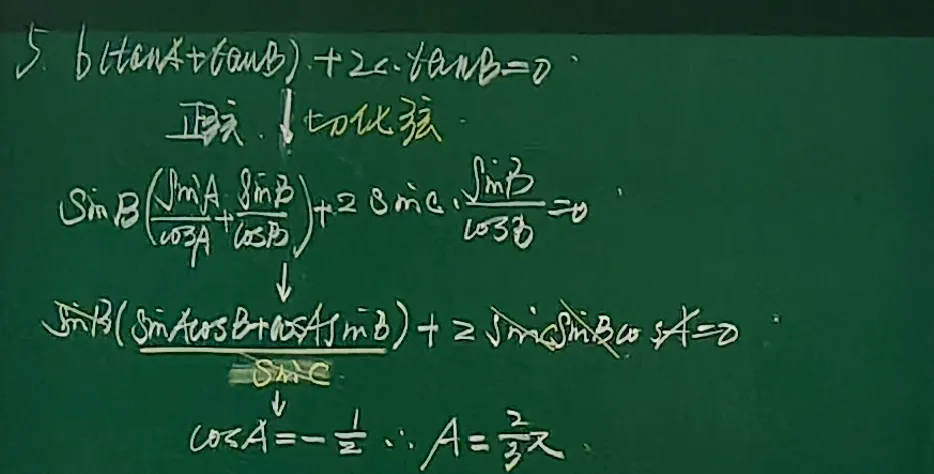 5. b(tanA+tanB)+2c·tanB=0
正弦. ↓ 切化弦.
SinB(SinA/cosA+SinB/cosB)+2sinC·SinB/cosB=0
↓
SinB(SinAcosB+cosAsinB)+2SinCSinBcosA=0
SinC
↓
cosA=-1/2 ∴ A=2/3π.